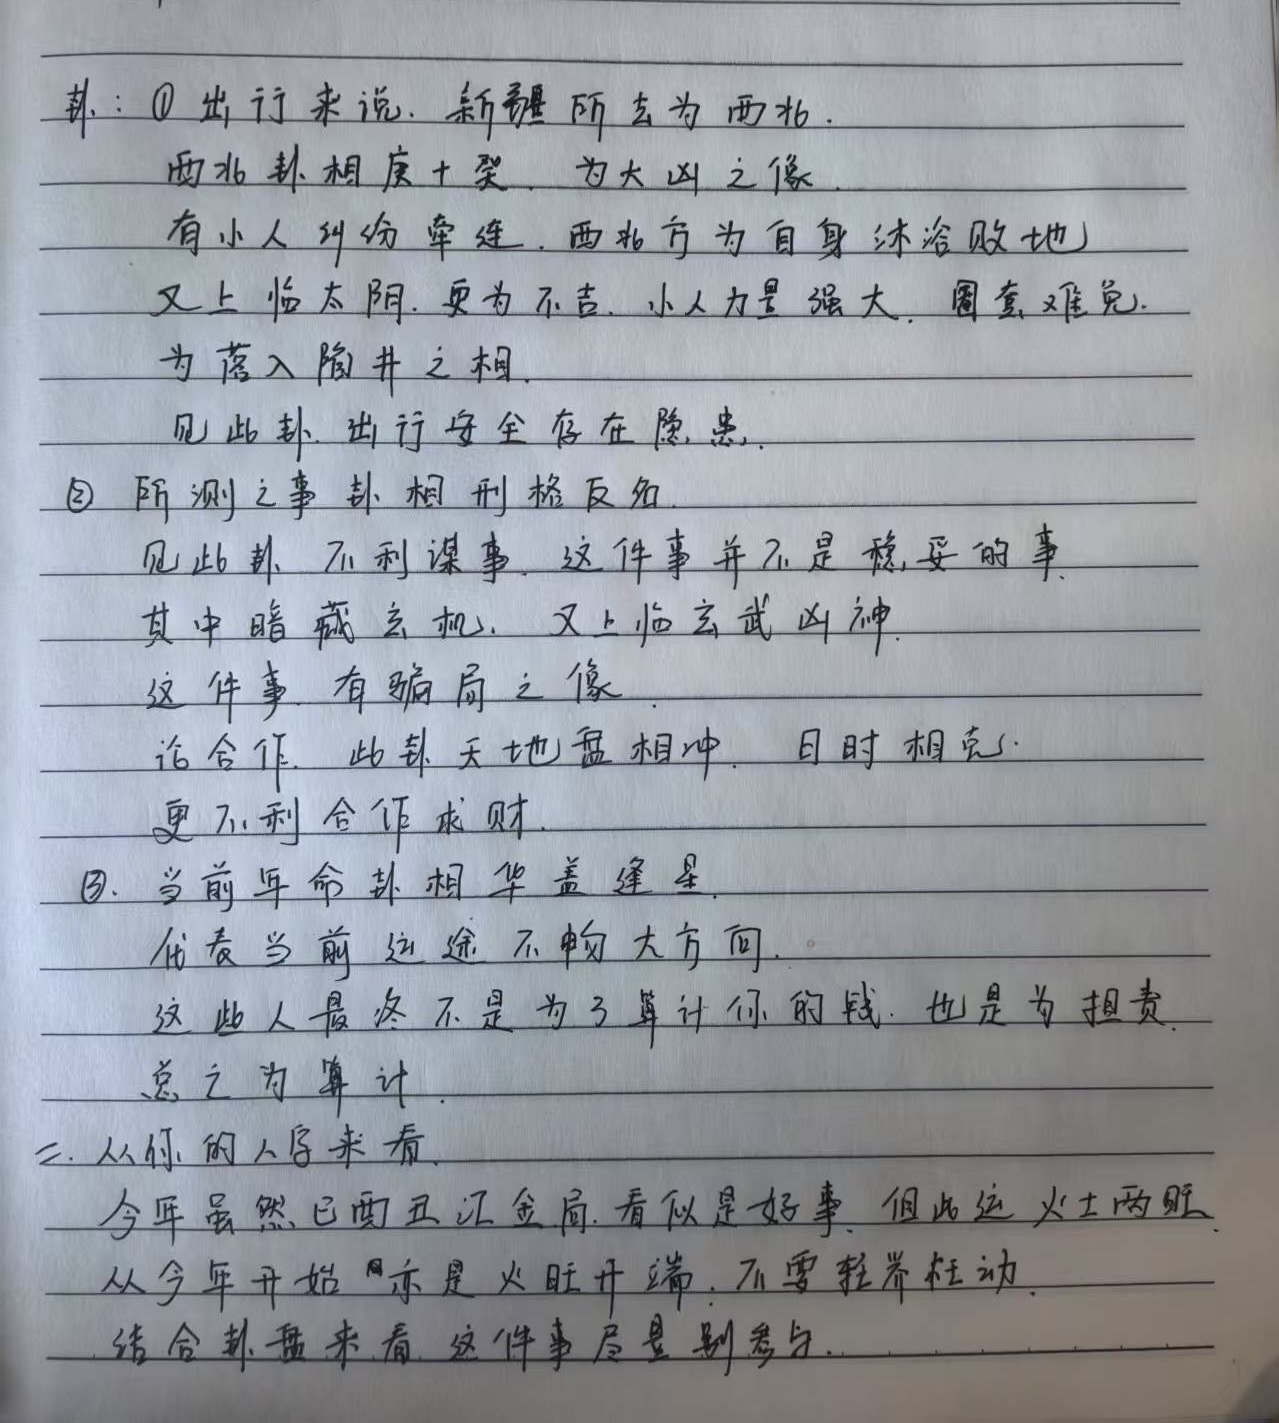 卦：① 出行来说．新疆所去为西北．
西北卦相庚十癸．为大凶之像．
有小人纠纷牵连．西北方为自身沐浴败地
又上临太阴．更为不吉．小人力量强大．圈套难免．
为落入陷井之相．
见此卦．出行安全存在隐患．
② 所测之事卦相刑格反名．
见此卦 不利谋事．这件事并不是稳妥的事．
其中暗藏玄机．又上临玄武凶神．
这件事．有骗局之像．
论合作．此卦天地盘相冲．日时相克．
更不利合作求财．
③．当前年命卦相华盖逢星．
代表当前运途不畅大方向．
这些人最终不是为了算计你的钱．也是为担责．
总之为算计．
二．从你的八字来看．
今年虽然巳酉丑汇金局．看似是好事．但此运火土两旺．
从今年开始 亦是火旺开端．不要轻举枉动．
结合卦盘来看．这件事尽量别参与．